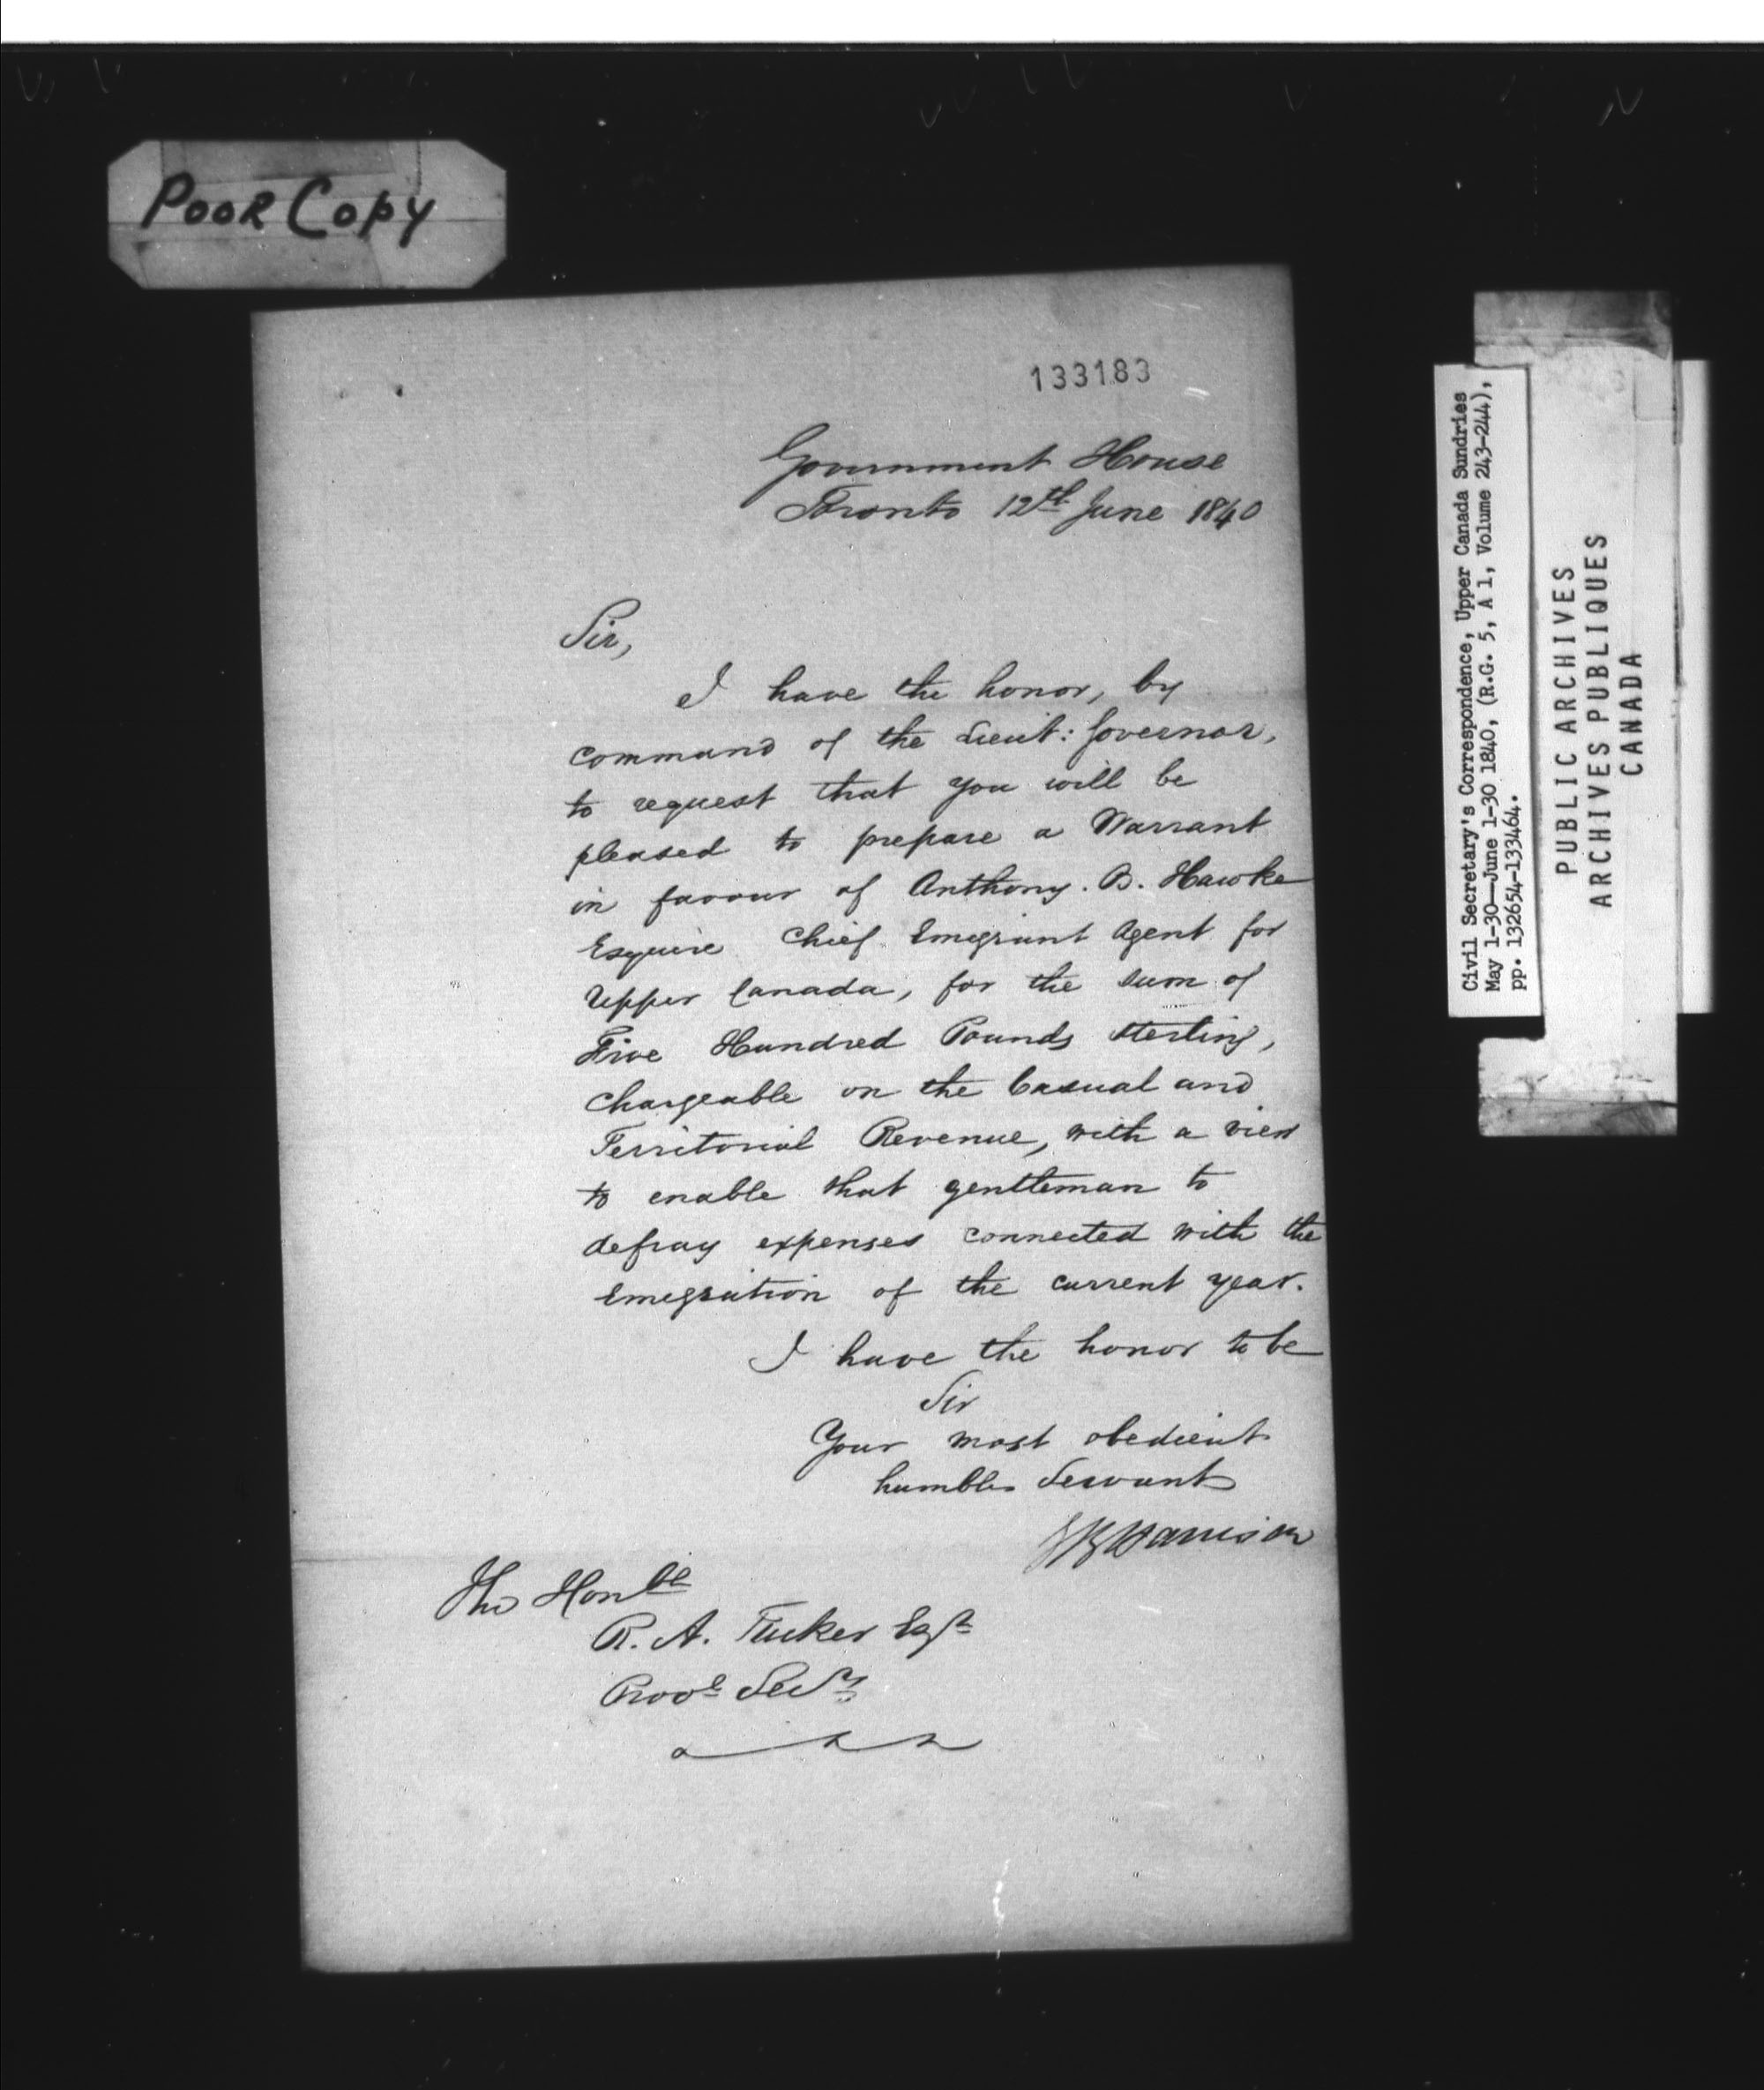 Poor Copy
133183
Government House
Toronto 12th June 1840
Sir,
I have the honor, by
command of the Lieut: Governor,
to request that you will be
pleased to prepare a Warrant
in favour of Anthony. B. Hawke
Esquire Chief Emigrant Agent for
Upper Canada, for the sum of
Five Hundred Pounds Sterling,
chargeable on the Casual and
Territorial Revenue, with a view
to enable that gentleman to
defray expenses connected with the
Emigration of the current year.
I have the honor to be
Sir
Your most obedient
humble Servant
S B Harrison
The Honble
R. A. Tucker Esqr
Provl Secy
Civil Secretary's Correspondence, Upper Canada Sundries
May 1-30—June 1-30 1840, (R.G. 5, A 1, Volume 243-244),
pp. 132654-133464.
PUBLIC ARCHIVES
ARCHIVES PUBLIQUES
CANADA